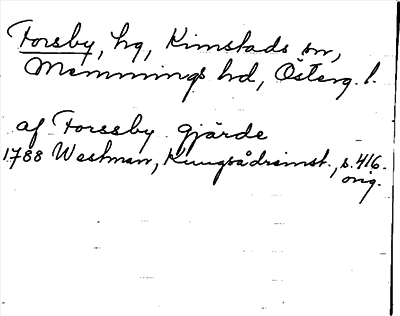 Forsby, hg, Kimstads sn,
Memmings hd, Österg. l.
af Forssby gjärde
1788 Westman, Kungsådreinst., s. 416.
orig.